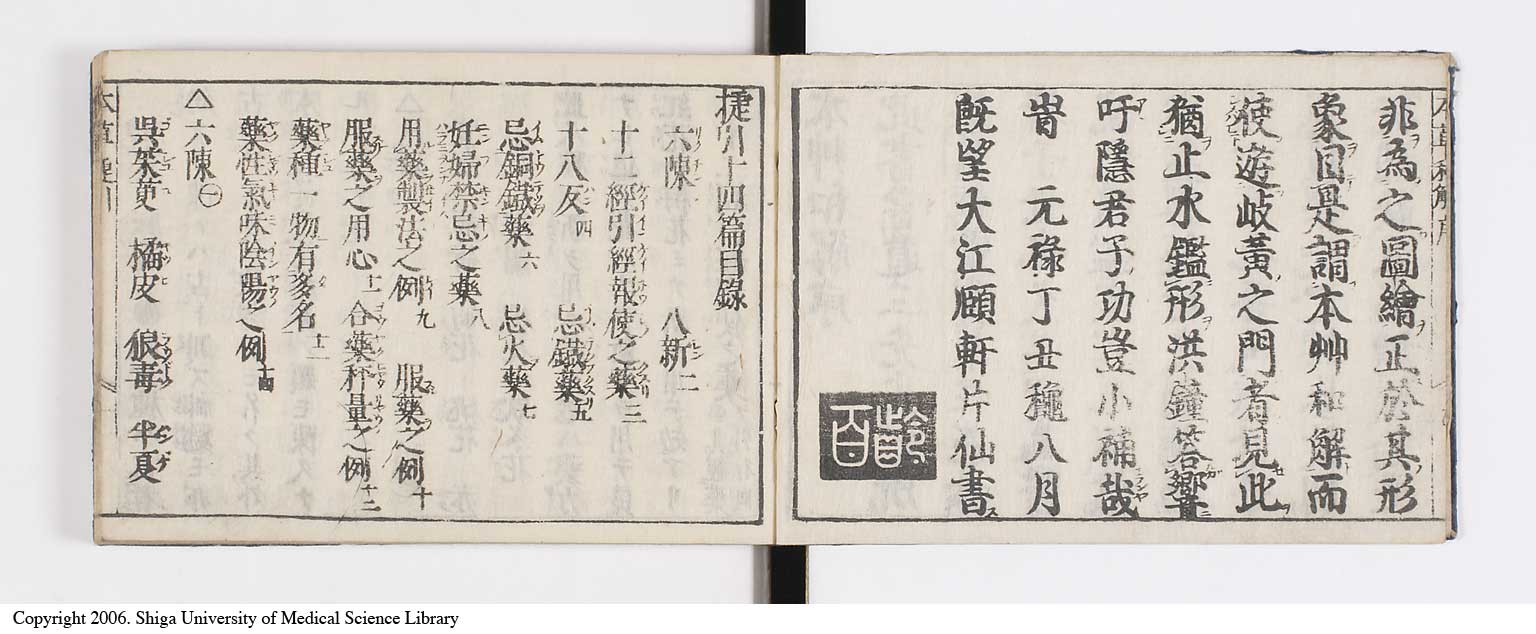 非為之圖繪正於其形
象目是謂本艸和解而
使遊岐黃之門者見此
猶止水鑑形洪鐘答響
吁隱君子功豈小補哉
旹 元祿丁丑龝八月
旣望大江頤軒片仙書
百齡
捷引十四篇目錄
六陳一 八新二
十二經引經報使之藥三
十八反四 忌鐵藥五
忌銅鐵藥六 忌火藥七
妊婦禁忌之藥八
用藥製法之例九 服藥之例十
服藥之用心十一 合藥秤量之例十二
藥種一物有多名十三
藥性氣味陰陽之例十四
△六陳㊀
呉茱萸 橘皮 狼毒 半夏
Copyright 2006. Shiga University of Medical Science Library